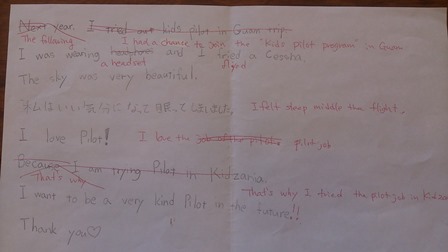 Next year. I tried out kids pilot in Guam trip.
The following I had a chance to join the "Kids pilot program" in Guam
I was wearing headfone and I tried a Cessna.
a headset flyed
The sky was very beautiful.
私はいい気分になって眠ってしまいました。 I felt sleep middle the flight.
I love Pilot! I love the job of the pilot pilot job
Because I am trying Pilot in Kidzania.
That's why That's why I tried the pilot job in Kidzania
I want to be a very kind Pilot in the future!!
Thank you♡